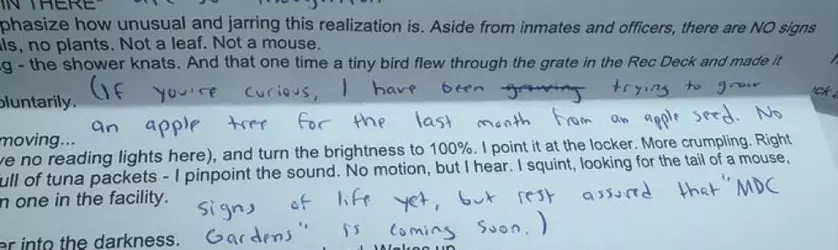 IN THERE
phasize how unusual and jarring this realization is. Aside from inmates and officers, there are NO signs
ls, no plants. Not a leaf. Not a mouse.
g - the shower knats. And that one time a tiny bird flew through the grate in the Rec Deck and made it
oluntarily.
(If you're curious, I have been growing trying to grow
an apple tree for the last month from an apple seed. No
moving...
ve no reading lights here), and turn the brightness to 100%. I point it at the locker. More crumpling. Right
ull of tuna packets - I pinpoint the sound. No motion, but I hear. I squint, looking for the tail of a mouse,
n one in the facility.
signs of life yet, but rest assured that "MDC
Gardens" is coming soon.)
er into the darkness.